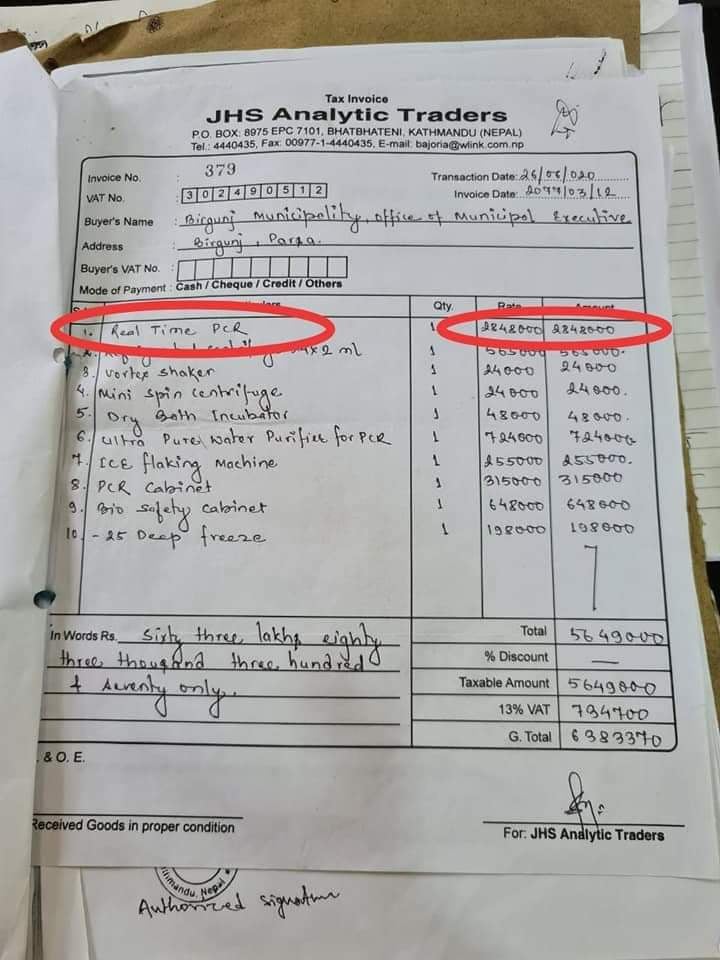 Tax Invoice
JHS Analytic Traders
P.O. BOX: 8975 EPC 7101, BHATBHATENI, KATHMANDU (NEPAL)
Tel.: 4440435, Fax: 00977-1-4440435, E-mail: bajoria@wlink.com.np
Invoice No. 379 Transaction Date: 26/06/020
VAT No. 302490512 Invoice Date: 2077/03/12
Buyer's Name : Birgunj Municipality, office of Municipal Executive
Address : Birgunj, Parsa.
Buyer's VAT No. :
Mode of Payment : Cash / Cheque / Credit / Others
Qty. Rate Amount
1. Real Time PCR 1 2848000 2848000
2. 2 ml 1 565000 565000.
3. Vortex shaker 1 24000 24000
4. Mini spin centrifuge 1 24000 24000.
5. Dry Bath Incubator 1 48000 48000.
6. Ultra Pure Water Purifier for PCR 1 724000 724000
7. ICE flaking Machine 1 255000 255000.
8. PCR Cabinet 1 315000 315000
9. Bio safety cabinet 1 648000 648000
10. -25 Deep freeze 1 198000 198000
In Words Rs. Sixty three lakhs eighty three thousand three hundred & seventy only.
Total 5649000
% Discount —
Taxable Amount 5649000
13% VAT 734700
G. Total 6383370
. & O. E.
Received Goods in proper condition
For: JHS Analytic Traders
Nepal
Authorized signature